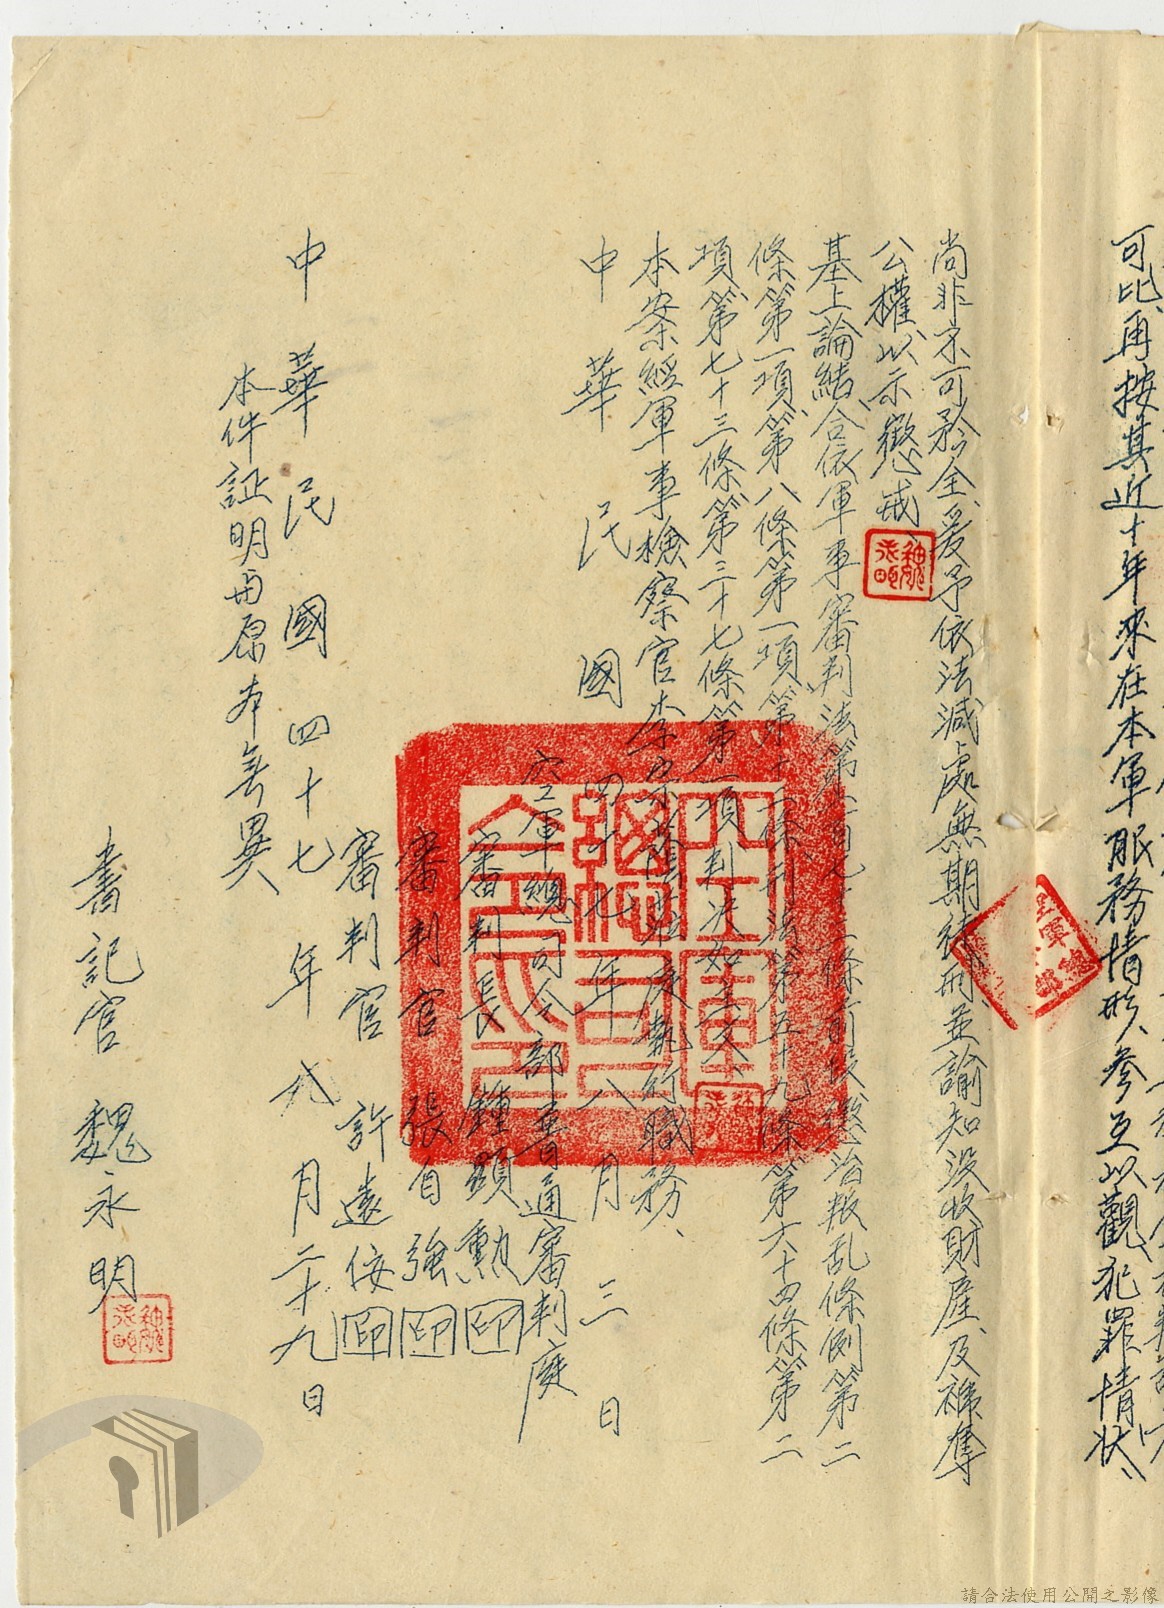 可比、再按其近十年來在本軍服務情形、參互以觀、犯罪情狀、
尚非不可矜全、爰予依法減處無期徒刑、並諭知沒收財產及褫奪
公權、以示懲戒、
基上論結、合依軍事審判法第一百七十三條前段、懲治叛乱條例第二
條第一項、第八條第一項、第十二條、刑法第五十九條、第六十四條第二
項、第七十三條、第三十七條第一項、判決如主文、
本案經軍事檢察官李 蒞庭執行職務、
中華民國四十七年八月三日
空軍總司令部普通審判庭
審判長 鍾顕勳 印
審判官 張自強 印
審判官 許遠侫 印
中華民國四十七年八月二十九日
本件証明与原本無異
書記官 魏永明
魏永明
空軍總司令印
請合法使用公開之影像